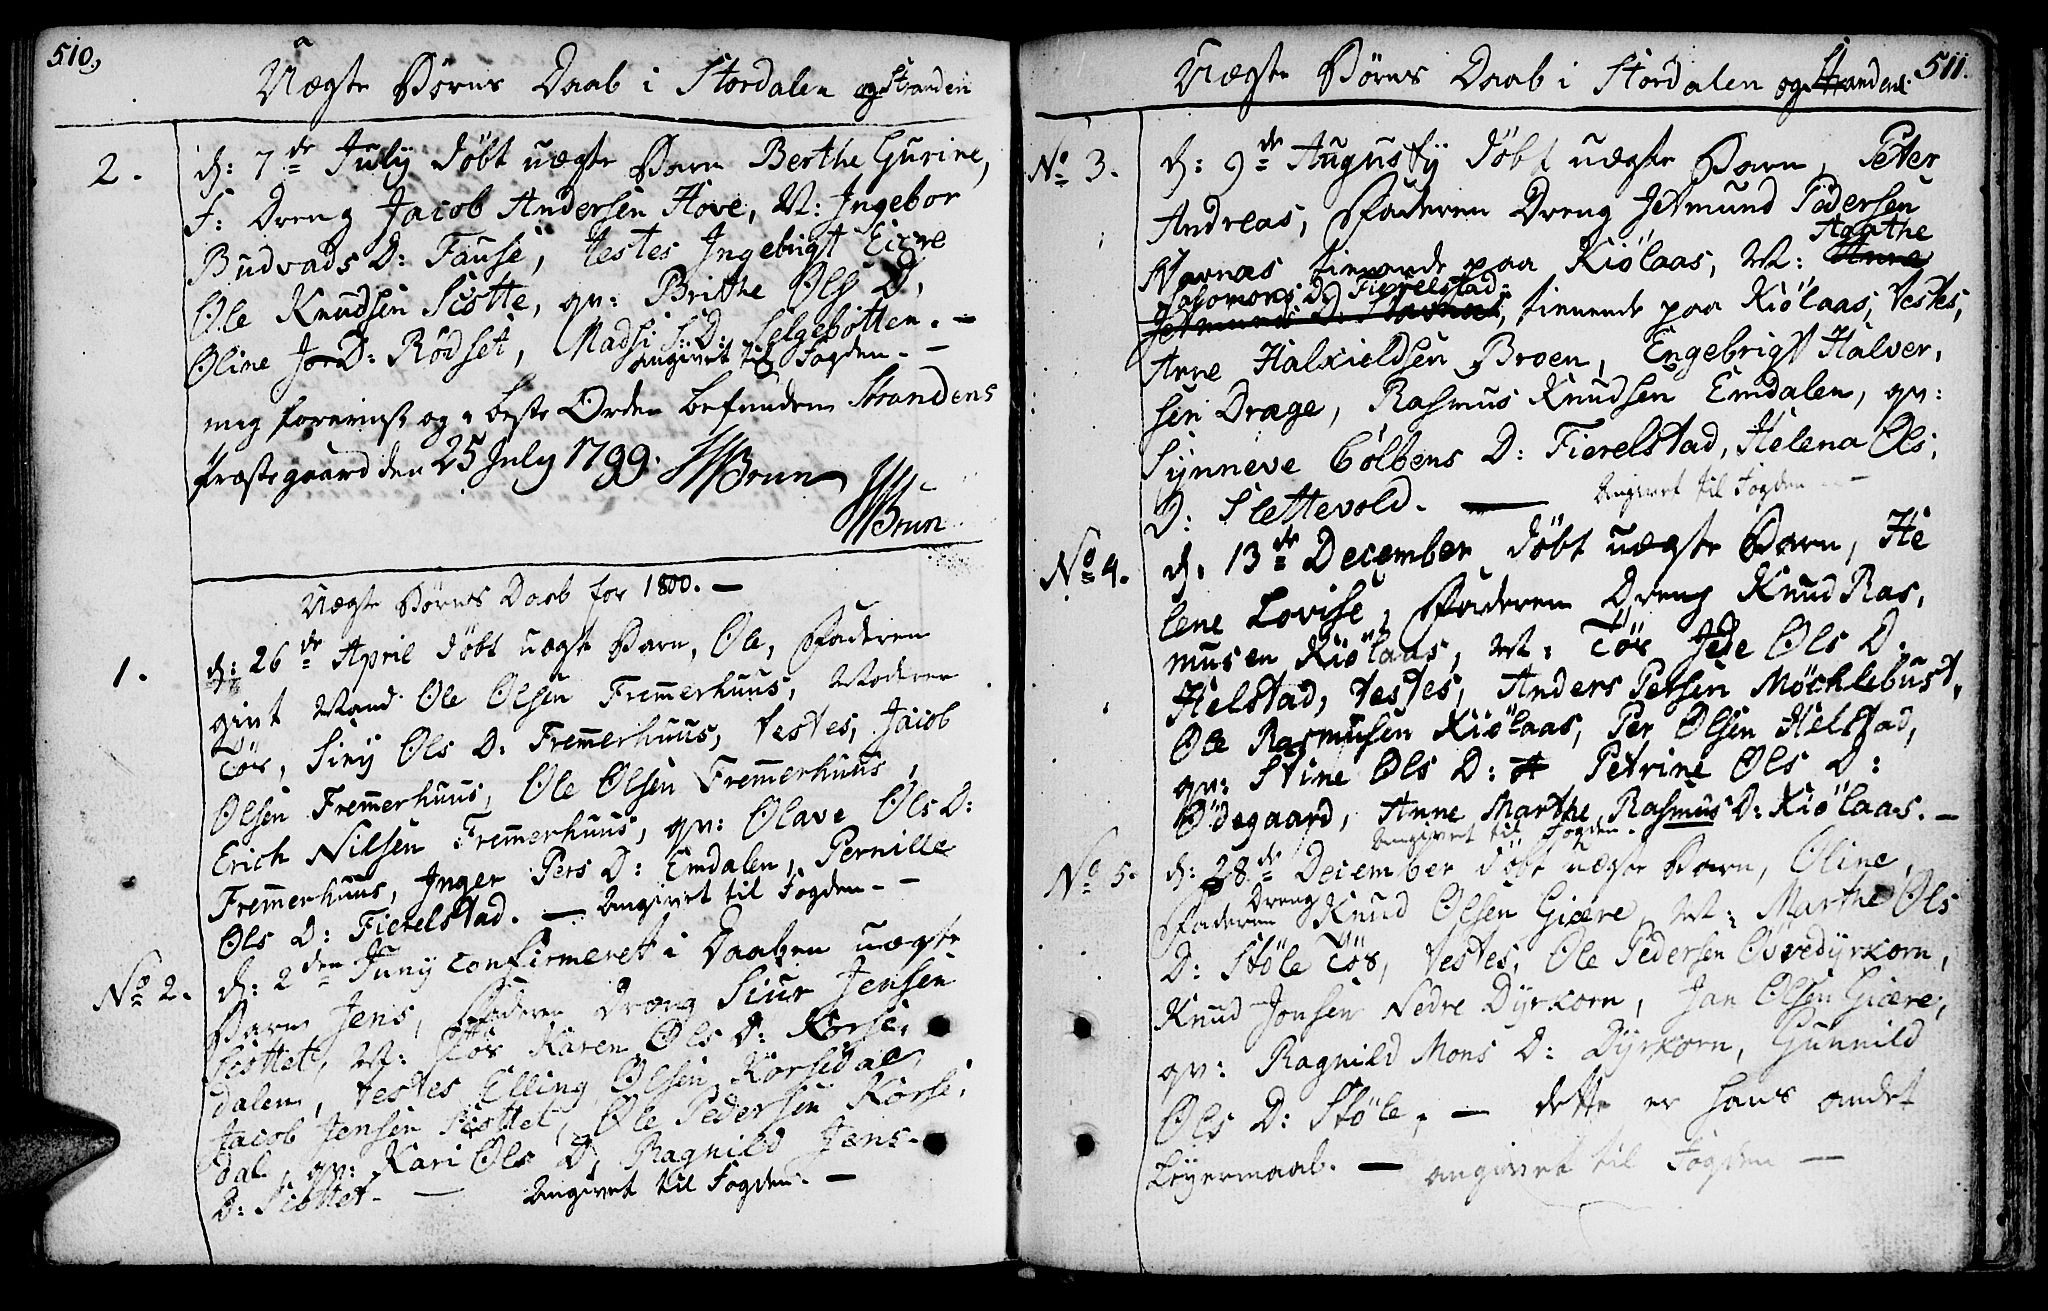 510,
Uægte Børns Daab i Stordalen og Stranden
2. d: 7de July döbt uægte Barn Berthe Gurine,
F: Dreng Jacob Andersen Hove, M: Ingebor
Budvads D: Fause, testes Ingebrigt Eide
Ole Knudsen Scotte, qv: Brithe Ols D,
Oline Jo D: Rödset, Madsi S: D: Selgebotten. —
angivet til Fogden. —
mig foreviist og i beste Orden befunden Strandens
Præstegaard den 25 July 1799. HBrun
HBrun
Uægte Börns Daab for 1800. —
1. d: 26de April döbt uægte Barn, Ole, Faderen
givt Mand Ole Olsen Fremerhuus, Moderen
Tös, Siny Ols D: Fremerhuus, testes, Jacob
Olsen Fremerhuus, Ole Olsen Fremerhuus,
Erich Nilsen Fremerhuus, qv: Olave Ols D:
Fremerhuus, Inger Pers D: Emdalen, Pernille
Ols D: Fierelstad. — Angivet til Fogden. —
No 2. d: 2den Juny confirmeret i Daaben uægte
Barn Jens, Faderen Dreng Siur Jensen
Scottet, M: Tös Karen Ols D: Korse,
dalen, testes Elling Olsen Korsedal,
Jacob Jensen Scottet, Ole Pedersen Korse,
dal, qv: Kari Ols D, Ragnild Jens-
D: Scottet. — Angivet til Fogden. —
511.
Uægte Börns Daab i Stordalen og Stranden
No 3. d: 9de Augusty döbt uægte Barn, Peter
Andreas, Faderen Dreng Jetmund Pedersen
Stavnæs tienende paa Kiölaas, M: Anne Agathe
Salomons D: Fierelstad
Jetmunds D: Stavnæs, tienende paa Kiölaas, testes,
Arne Halkieldsen Broen, Engebrigt Halver,
sen Drage, Rasmus Knudsen Emdalen, qv:
Synneve Colbens D: Fierelstad, Helena Ols,
D: Slettevold. — Angivet til Fogden —
No 4. d. 13de December döbt uægte Barn, He
lene Lovise, Faderen Dreng Knud Ras,
musen Kiölaas, M: Tös Jede Ols D.
Helstad, testes, Anders Petsen Möcklebust,
Ole Rasmusen Kiölaas, Per Olsen Helstad,
qv: Stine Ols D: Petrine Ols D:
Ödegaard, Anne Marthe Rasmus D: Kiölaas. —
Angivet til Fogden.
No 5. d: 28de December döbt uægte Barn, Oline,
Faderen Dreng Knud Olsen Giære, M: Marthe Ols
D: Stöle Tös, testes, Ole Pedersen Övvedyrkorn,
Knud Jonsen Nedre Dyrkorn, Jan Olsen Giære,
qv: Ragnild Mons D: Dyrkorn, Gunnild
Ols D: Stöle, — dette er hans andet
Leyermaal. — angivet til Fogden —